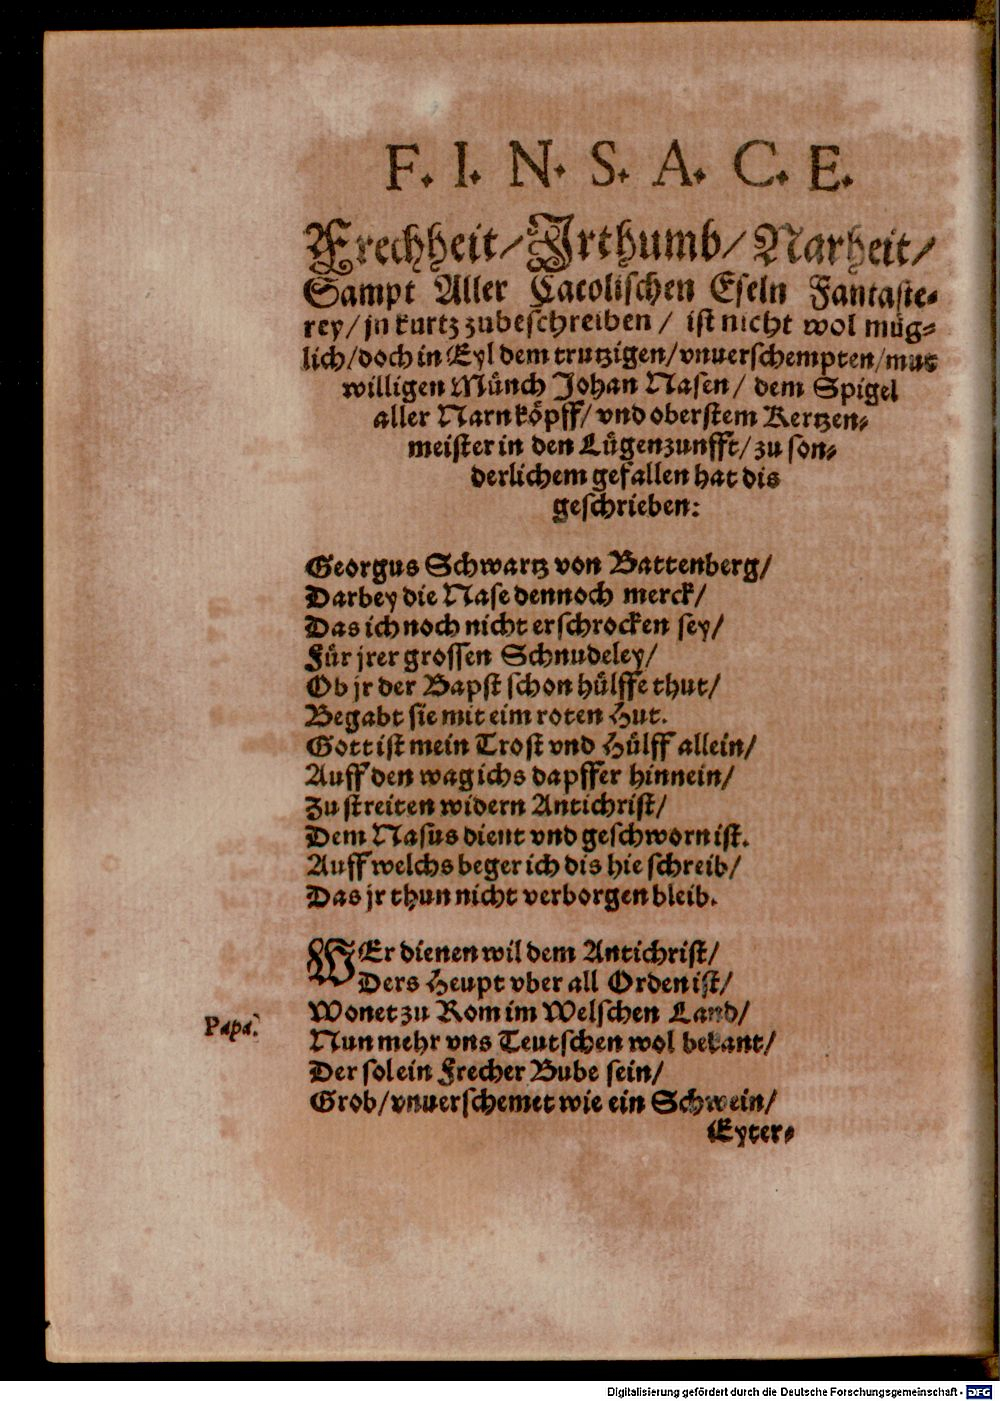 F. I. N. S. A. C. E.
Frechheit/ Irthumb/ Narheit/
Sampt Aller Cacolischen Eseln Fantaste-
rey/ jn kurtz zubeschreiben/ ist nicht wol müg-
lich/ doch in Eyl dem trutzigen/ vnuerschempten/ mut
willigen Münch Johan Nasen/ dem Spigel
aller Narn köpff/ vnd oberstem Kertzen-
meister in den Lügenzunfft/ zu son-
derlichem gefallen hat dis
geschrieben:
Georgus Schwartz von Battenberg/
Darbey die Nase dennoch merck/
Das ich noch nicht erschrocken sey/
Für jrer grossen Schnudeley/
Ob jr der Bapst schon hülffe thut/
Begabt sie mit eim roten Hut.
Gott ist mein Trost vnd Hülff allein/
Auff den wag ichs dapffer hinnein/
Zu streiten widern Antichrist/
Dem Nasus dient vnd geschworn ist.
Auff welchs beger ich dis hie schreib/
Das jr thun nicht verborgen bleib.
WEr dienen wil dem Antichrist/
Ders Heupt vber all Orden ist/
Papa.
Wonet zu Rom im Welschen Land/
Nun mehr vns Teutschen wol bekant/
Der sol ein Frecher Bube sein/
Grob/ vnuerschemet wie ein Schwein/
Eyter-
Digitalisierung gefördert durch die Deutsche Forschungsgemeinschaft - DFG